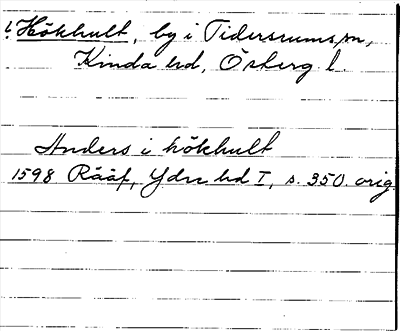 Hökhult, by i Tidersrums sn,
Kinda hd, Österg l.
Anders i hökhult
1598 Rääf, Ydre hd I, s. 350. orig.